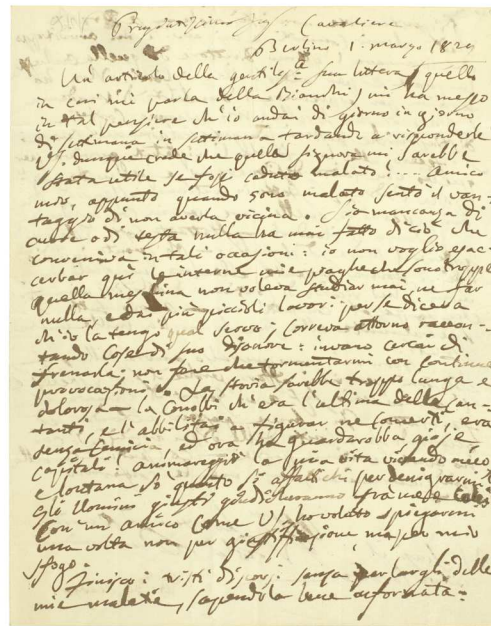 Pregiatissimo Sigr Cavaliere
Berlino 1. marzo 1829
Un articolo della gentilesa sua lettera (quello
in cui mi parla della Bianchi) mi ha messo
in tal pensiere ch'io andai di giorno in giorno
di settimana in settimana tardando a risponderle
V.S. dunque crede che quella signora mi sarebbe
stata utile se fossi caduto malato! .... Amico
mio, appunto quando sono malato sento il van-
taggio di non averla vicina. Sia mancanza di
cuore o di testa nulla ha mai fatto di ciò che
conveniva in tali occasioni: io non voglio esac-
cerbar qui le interne mie piaghe che sono troppe
quella meschina non voleva studiar mai, ne far
nulla, e dai più piccioli lavori per se diceva
ch'io la tengo qual serva, correva attorno raccon-
tando cose di suo disonore: invano cercai di
frenarla: non fare che tormentarmi con continue
provocazioni. La storia sarebbe troppo lunga e
dolorosa la Conobbi ch'era l'ultima delle can-
tanti, e l'abbilitai a figurar ne Concerti, era
senza Camicia, ed ora ha guardarobba gioje e
capitali! amareggiò la mia vita vivendo meco
e lontana so quanto si affatichi per denigrarmi
gli Uomini giusti giudicheranno fra me e
Con un amico come VS. ho volsuto spiegarmi
una volta non per giustificazione ma per mio
sfogo.
Finisco: i versi di senza parlargli delle
mie malatie, sapendola bene informata: